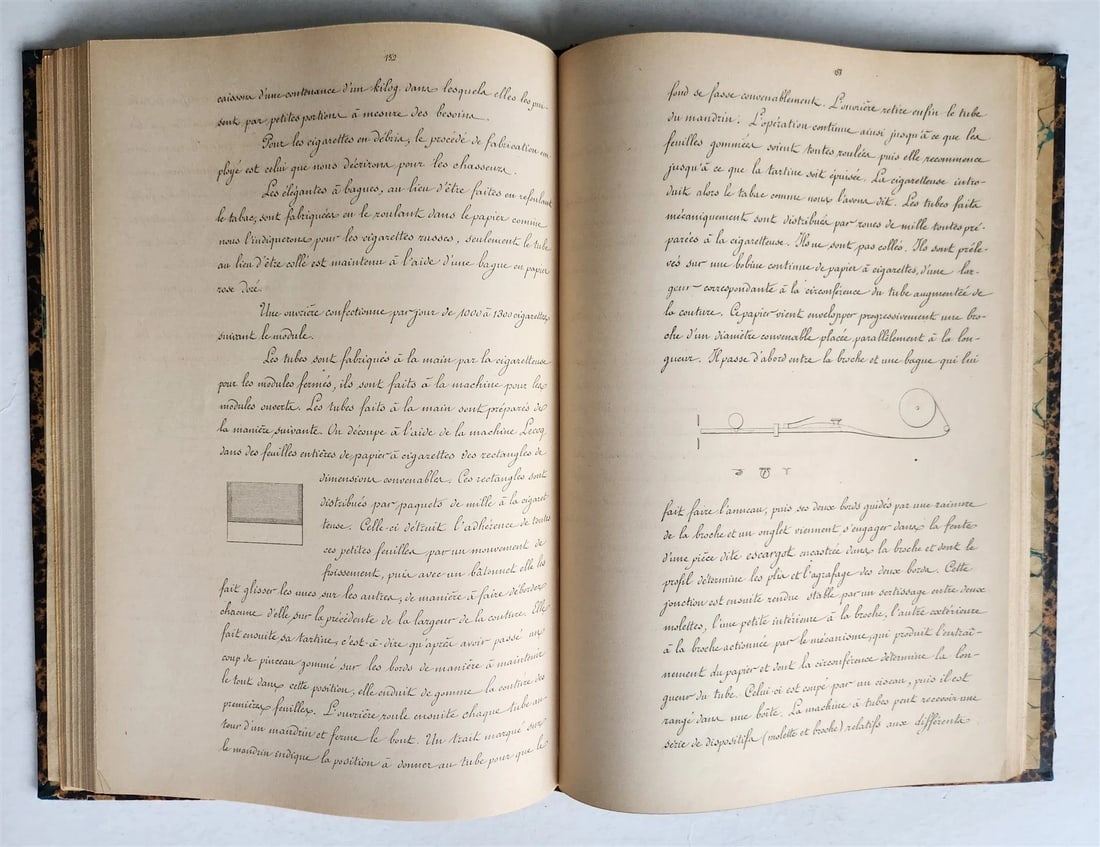 152
caissons d'une contenance d'un kilog. dans lesquels elles les pui-
sent par petites portions à mesure des besoins.
Pour les cigarettes en débris, le procédé de fabrication em
ployé est celui que nous décrirons pour les chasseurs.
Les élégantes à bagues, au lieu d'être faites en refoulant
le tabac, sont fabriquées en le roulant dans le papier comme
nous l'indiquerons pour les cigarettes russes, seulement le tube
au lieu d'être collé est maintenu à l'aide d'une bague en papier
rose doré.
Une ouvrière confectionne par jour de 1000 à 1300 cigarettes
suivant le module.
Les tubes sont fabriqués à la main par la cigaretteuse
pour les modules fermés, ils sont faits à la machine pour les
modules ouverts. Les tubes faits à la main sont préparés de
la manière suivante. On découpe à l'aide de la machine Lecoq
dans des feuilles entières de papier à cigarettes des rectangles de
dimensions convenables. Ces rectangles sont
distribués par paquets de mille à la cigaret
teuse. Celle-ci détruit l'adhérence de toutes
ces petites feuilles par un mouvement de
froissement, puis avec un bâtonnet elle les
fait glisser les unes sur les autres, de manière à faire déborder
chacune d'elle sur la précédente de la largeur de la couture. Elle
fait ensuite sa tartine, c'est-à-dire qu'après avoir passé un
coup de pinceau gommé sur les bords de manière à maintenir
le tout dans cette position, elle enduit de gomme la couture des
premières feuilles. L'ouvrière roule ensuite chaque tube au-
tour d'un mandrin et ferme le bout. Un trait marqué sur
le mandrin indique la position à donner au tube pour que le
fond se fasse convenablement. L'ouvrière retire enfin le tube
du mandrin. L'opération continue ainsi jusqu'à ce que les
feuilles gommées soient toutes roulées puis elle recommence
jusqu'à ce que la tartine soit épuisée. La cigaretteuse intro-
duit alors le tabac comme nous l'avons dit. Les tubes faits
mécaniquement sont distribués par roues de mille toutes pré-
parées à la cigaretteuse. Ils ne sont pas collés. Ils sont préle-
vés sur une bobine continue de papier à cigarettes, d'une lar-
geur correspondante à la circonférence du tube augmentée de
la couture. Ce papier vient envelopper progressivement une bro-
che d'un diamètre convenable placée parallèlement à la lon-
gueur. Il passe d'abord entre la broche et une bague qui lui
fait faire l'anneau, puis ses deux bords guidés par une rainure
de la broche et un onglet viennent s'engager dans la fente
d'une pièce dite escargot encastrée dans la broche et dont le
profil détermine les plis et l'agrafage des deux bords. Cette
jonction est ensuite rendue stable par un sertissage entre deux
molettes, l'une petite intérieure à la broche, l'autre extérieure
à la broche actionnée par le mécanisme, qui produit l'entraî-
nement du papier et dont la circonférence détermine la lon-
gueur du tube. Celui-ci est coupé par un ciseau, puis il est
rangé dans une boîte. La machine à tubes peut recevoir une
série de dispositifs (molette et broche) relatifs aux différents